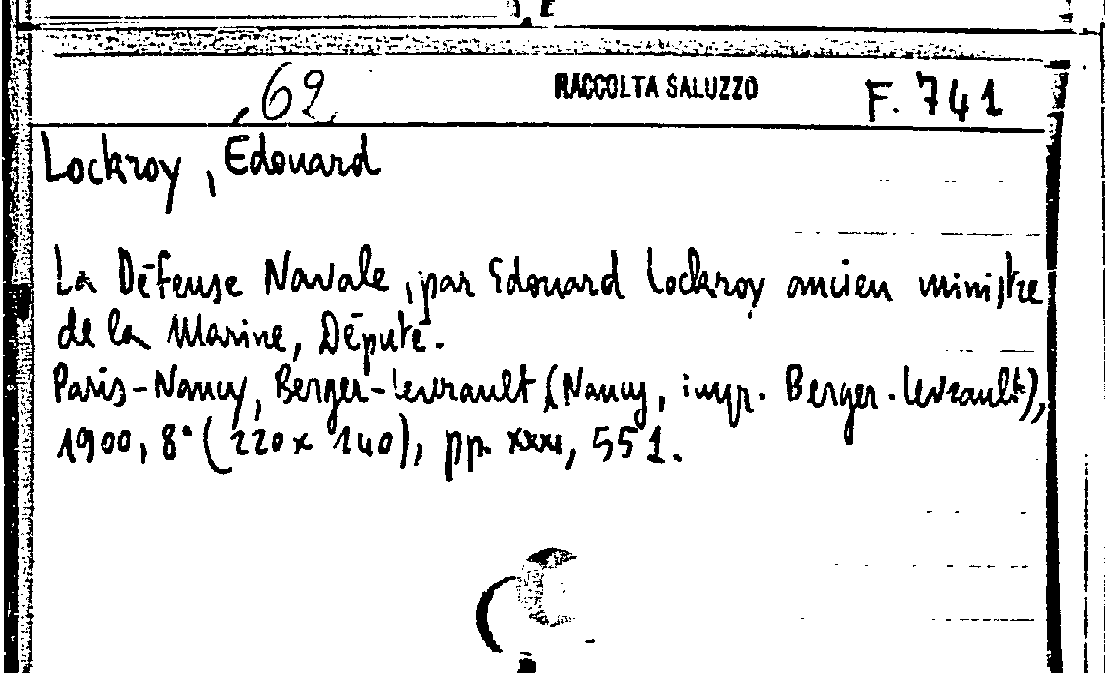 62 RACCOLTA SALUZZO F. 741
Lockroy, Edouard
La Défense Navale, par Edouard Lockroy ancien ministre
de la Marine, Député.
Paris-Nancy, Berger-Levrault (Nancy, impr. Berger-Levrault),
1900, 8° (220 x 140), pp. xxxi, 551.